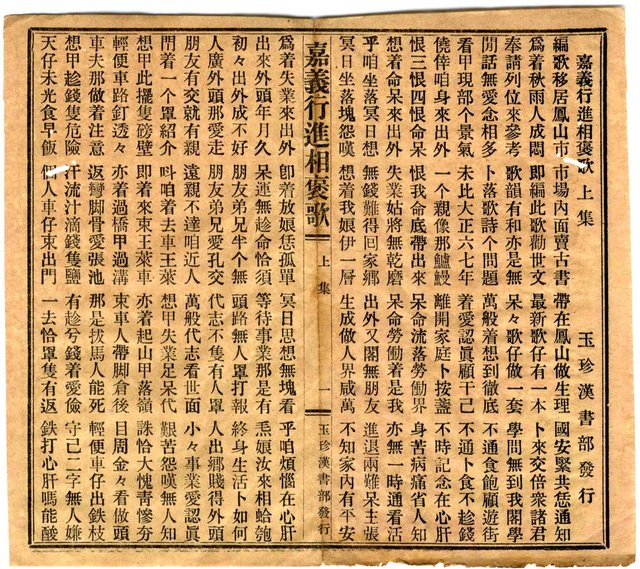 嘉義行進相褒歌上集　玉珍漢書部發行
編歌移居鳳山市　市場內面賣古書　帶在鳳山做生理　國安緊共恁通知
爲着秋雨人成悶　即編此歌勸世文　最新歌仔有一本　卜來交倍衆諸君
奉請列位來參考　歌韻有和亦是無　呆々歌仔做一套　學問無到我閣學
閒話無愛念相多　卜落歌詩个問題　萬般着想到徹底　不通食飽顧遊街
看甲現部个景氣　未比大正六七年　着愛認眞顧干己　不通卜食不趁錢
僥倖咱身來出外　一个親像那鱸鰻　離開家庭卜按盞　不時記念在心肝
恨三恨四恨命呆　恨我命底帶出來　呆命流落勞働界　身苦病痛省人知
想着命呆來出外　失業姑將無乾磨　呆命勞働着是我　亦無一時通看活
乎咱坐落冥日想　無錢難得回家鄉　出外又閣無朋友　進退兩難呆主張
冥日坐落塊怨嘆　想着我娘伊一層　生成做人界咸萬　不知家內有平安
嘉義行進相褒歌　上集　一　玉珍漢書部發行
爲着失業來出外　卽着放娘恁孤單　冥日思想無塊看　乎咱煩惱在心肝
出來外頭年月久　呆運無趁命恰須　等待事業那是有　娘汝來相蛤匏
初々出外成不好　朋友弟兄半个無　頭路無人罩打報　終身生活卜如何
人廣外頭那愛走　朋友弟兄愛孔交　代志不隻有人罩　人出鄉賤得外頭
朋友有交就有親　遠親不達咱近人　萬般代志看世面　小々事業愛認眞
閂着一个罩紹介　呌咱着去車王萊　想甲失業足呆代　艱苦怨嘆無人知
想甲此擺隻磅壁　即着來束王萊車　亦着起山甲落嶺　誅恰大愧青慘夯
輕便車路釘透々　亦着過橋甲過溝　束車人帶脚倉後　目周金々看做頭
車夫那做着注意　返彎脚骨愛張池　那是拔馬人能死　輕便車仔出鉄枝
想甲趁錢隻危險　汗流汁滴錢隻鹽　有趁兮錢着愛儉　守己二字無人嫌
天仔未光食早飯　個人車仔束出門　一去恰罩隻有返　鉄打心肝嗎能酸